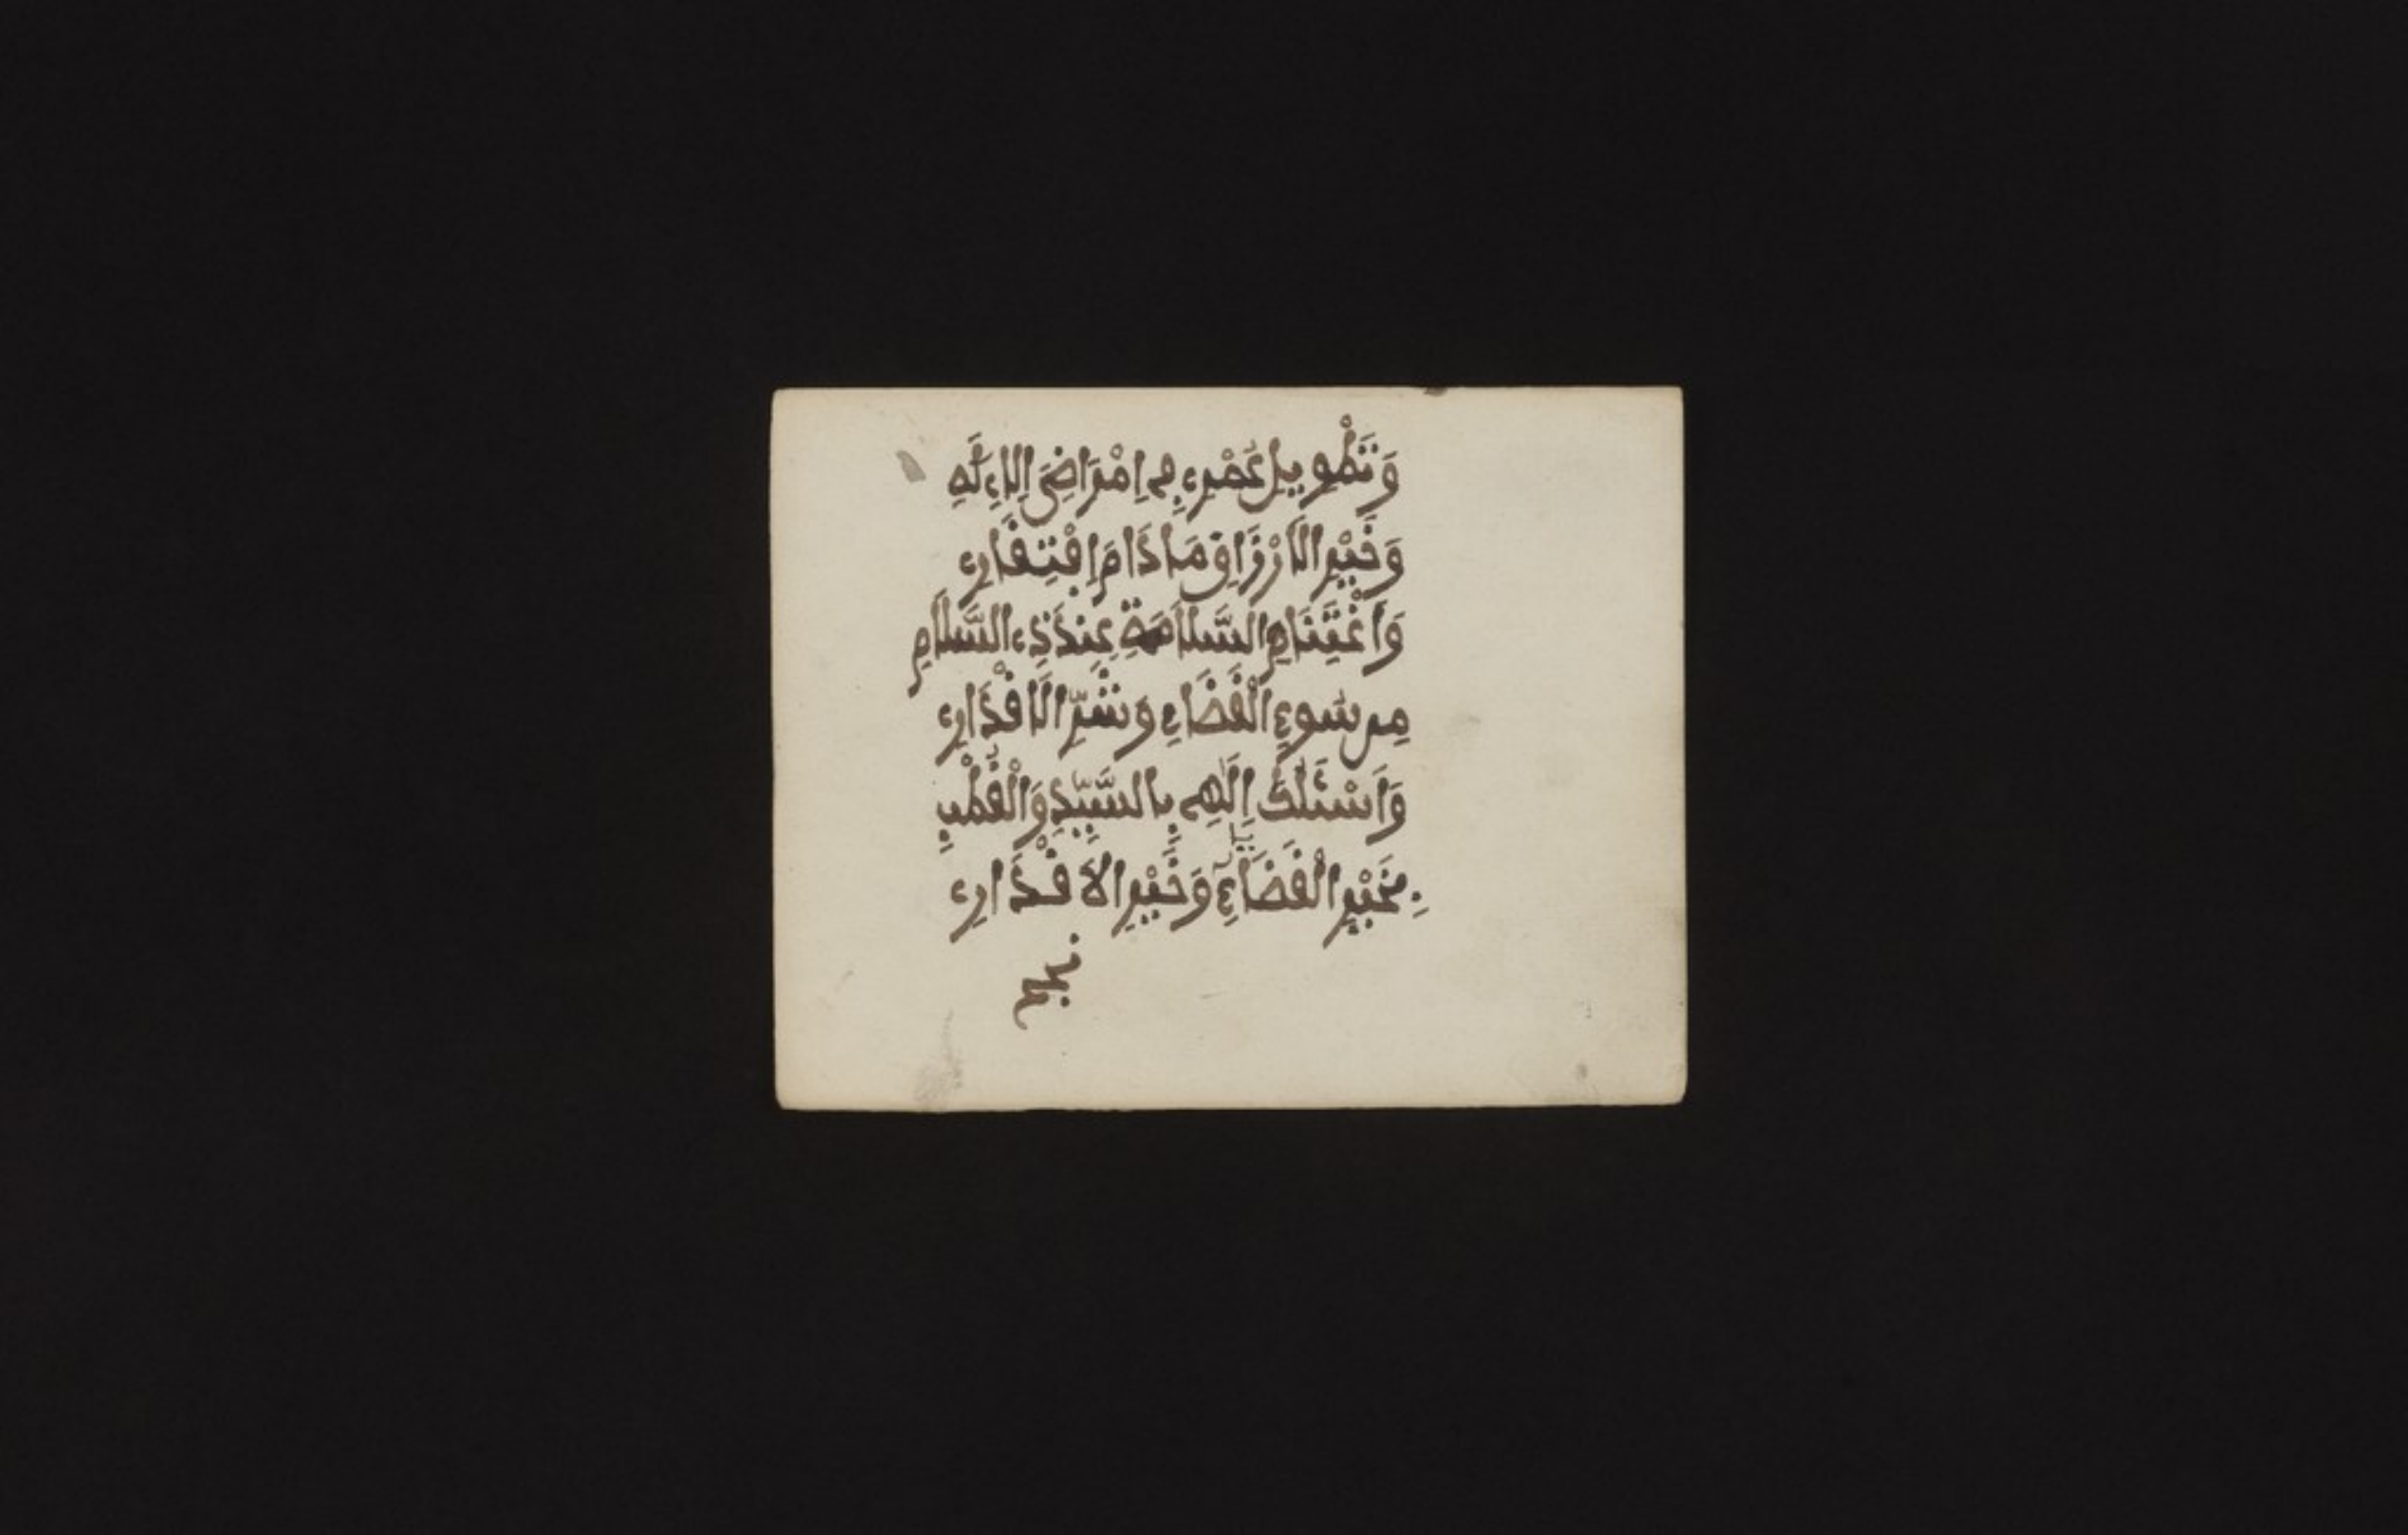 وَتَطْوِيلِ عُمْرِي فِي اِمْرَاضِيَ اِلَاءِلَهِ
وَخَيْرِ الَارْزَاقِ مَا دَامَ اِفْتِقَارِي
وَاَغْتِنَامِ السَّلَامَةِ عِنْدَ ذِي السَّلَامِ
مِن سُوءِ الْقَضَاءِ وَشَرِّ الَاقْدَارِ
وَاَسْئَلُكَ اِلَهِي بِالسَّيِّدِ وَالْقُطْبِ
بِخَيْرِ الْقَضَاءِ وَخَيْرِ الَاقْدَارِ